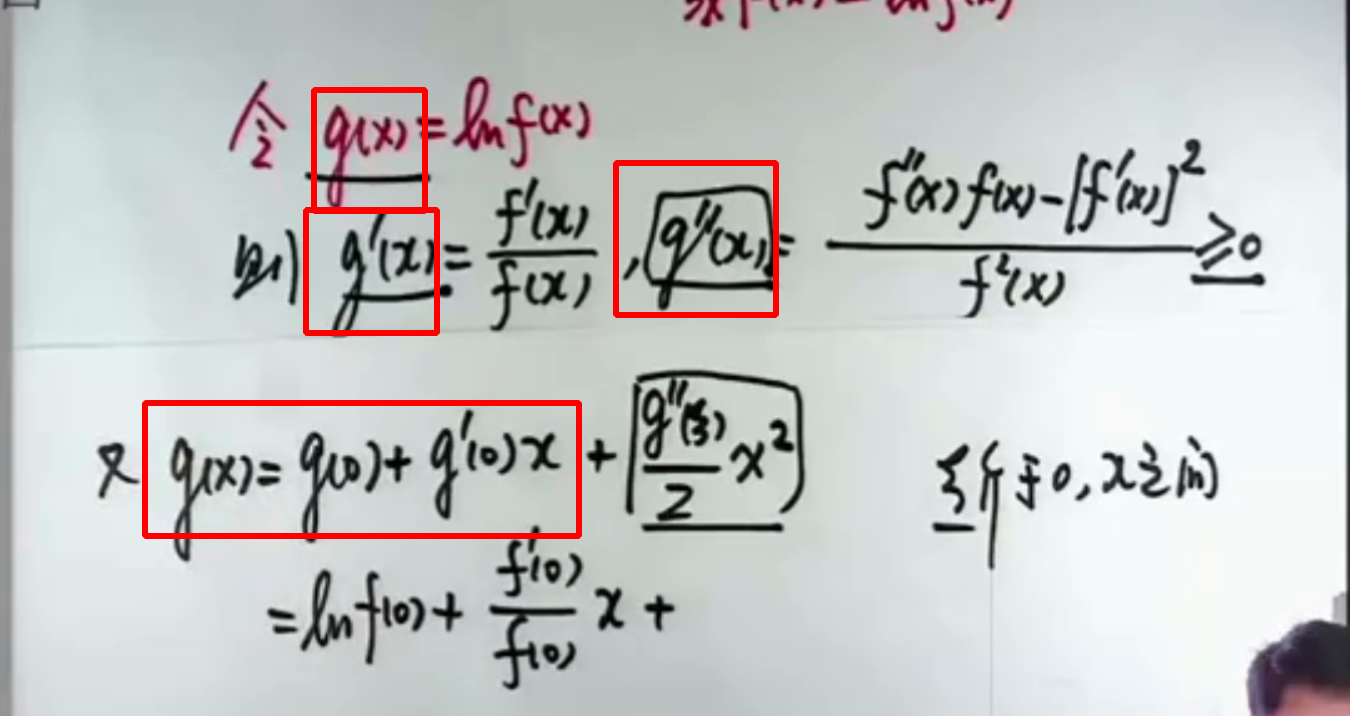 令 g(x) = ln f(x)
则 g'(x) = f'(x)/f(x) , g''(x) = (f''(x) f(x) - [f'(x)]²)/f²(x) ≥ 0
又 g(x) = g(0) + g'(0)x + g''(ξ)/2 x² ξ介于0,x之间
= ln f(0) + f'(0)/f(0) x +